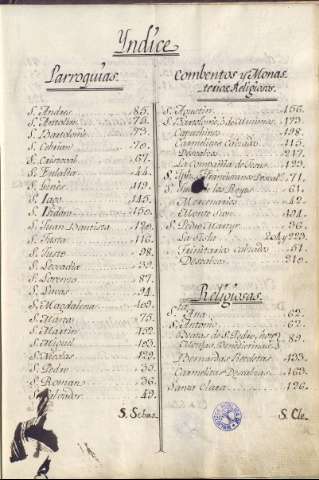 Yndice
Parroquias.
S. Andres 85.
S. Antolin 76.
S. Bartolome 73.
S. Cebrian 70.
S. Cristoval 67.
S. Eulalia 44.
S. Gines 119.
S. Iago 145.
S. Isidoro 150.
S. Juan Bautista 120.
S. Justa 116.
S. Justo 98.
S. Leocadia 39.
S. Lorenzo 87.
S. Lucas 94.
S. Magdalena 109.
S. Maria 75.
S. Martin 152.
S. Miguel 103.
S. Nicolas 129.
S. Pedro 33.
S. Roman 36.
S. Salvador 49.
S. Sebas
Combentos y Monas
terios Religiosos.
S. Agustin 156.
S. Bartolome, S. de Minimos 173.
Capuchinos 198.
Carmelitas Calzado 115.
Descalzos 217.
La Compañia de Jesus 123.
Franciscanos Descal 71.
S. Juan de los Reyes 61.
Mercenarios 42.
Monte Sion 191.
S. Pedro Martyr 96.
La Sisla 223.
Trinitarios calzados 51.
Descalzos 210.
Religiosas.
S. Ana 62.
S. Antonio 62.
Beatas de S. Pedro,
Monjas Benedictinas 89.
Bernardas Recoletas 133.
Carmelitas Descalzas 163.
Santa Clara 126.
S. Cle